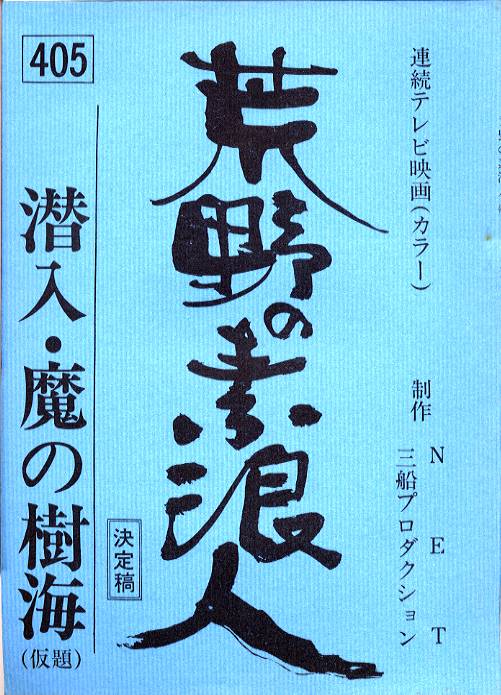 連続テレビ映画(カラー)
制作 NET
三船プロダクション
荒野の素浪人
決定稿
405
潜入・魔の樹海
(仮題)